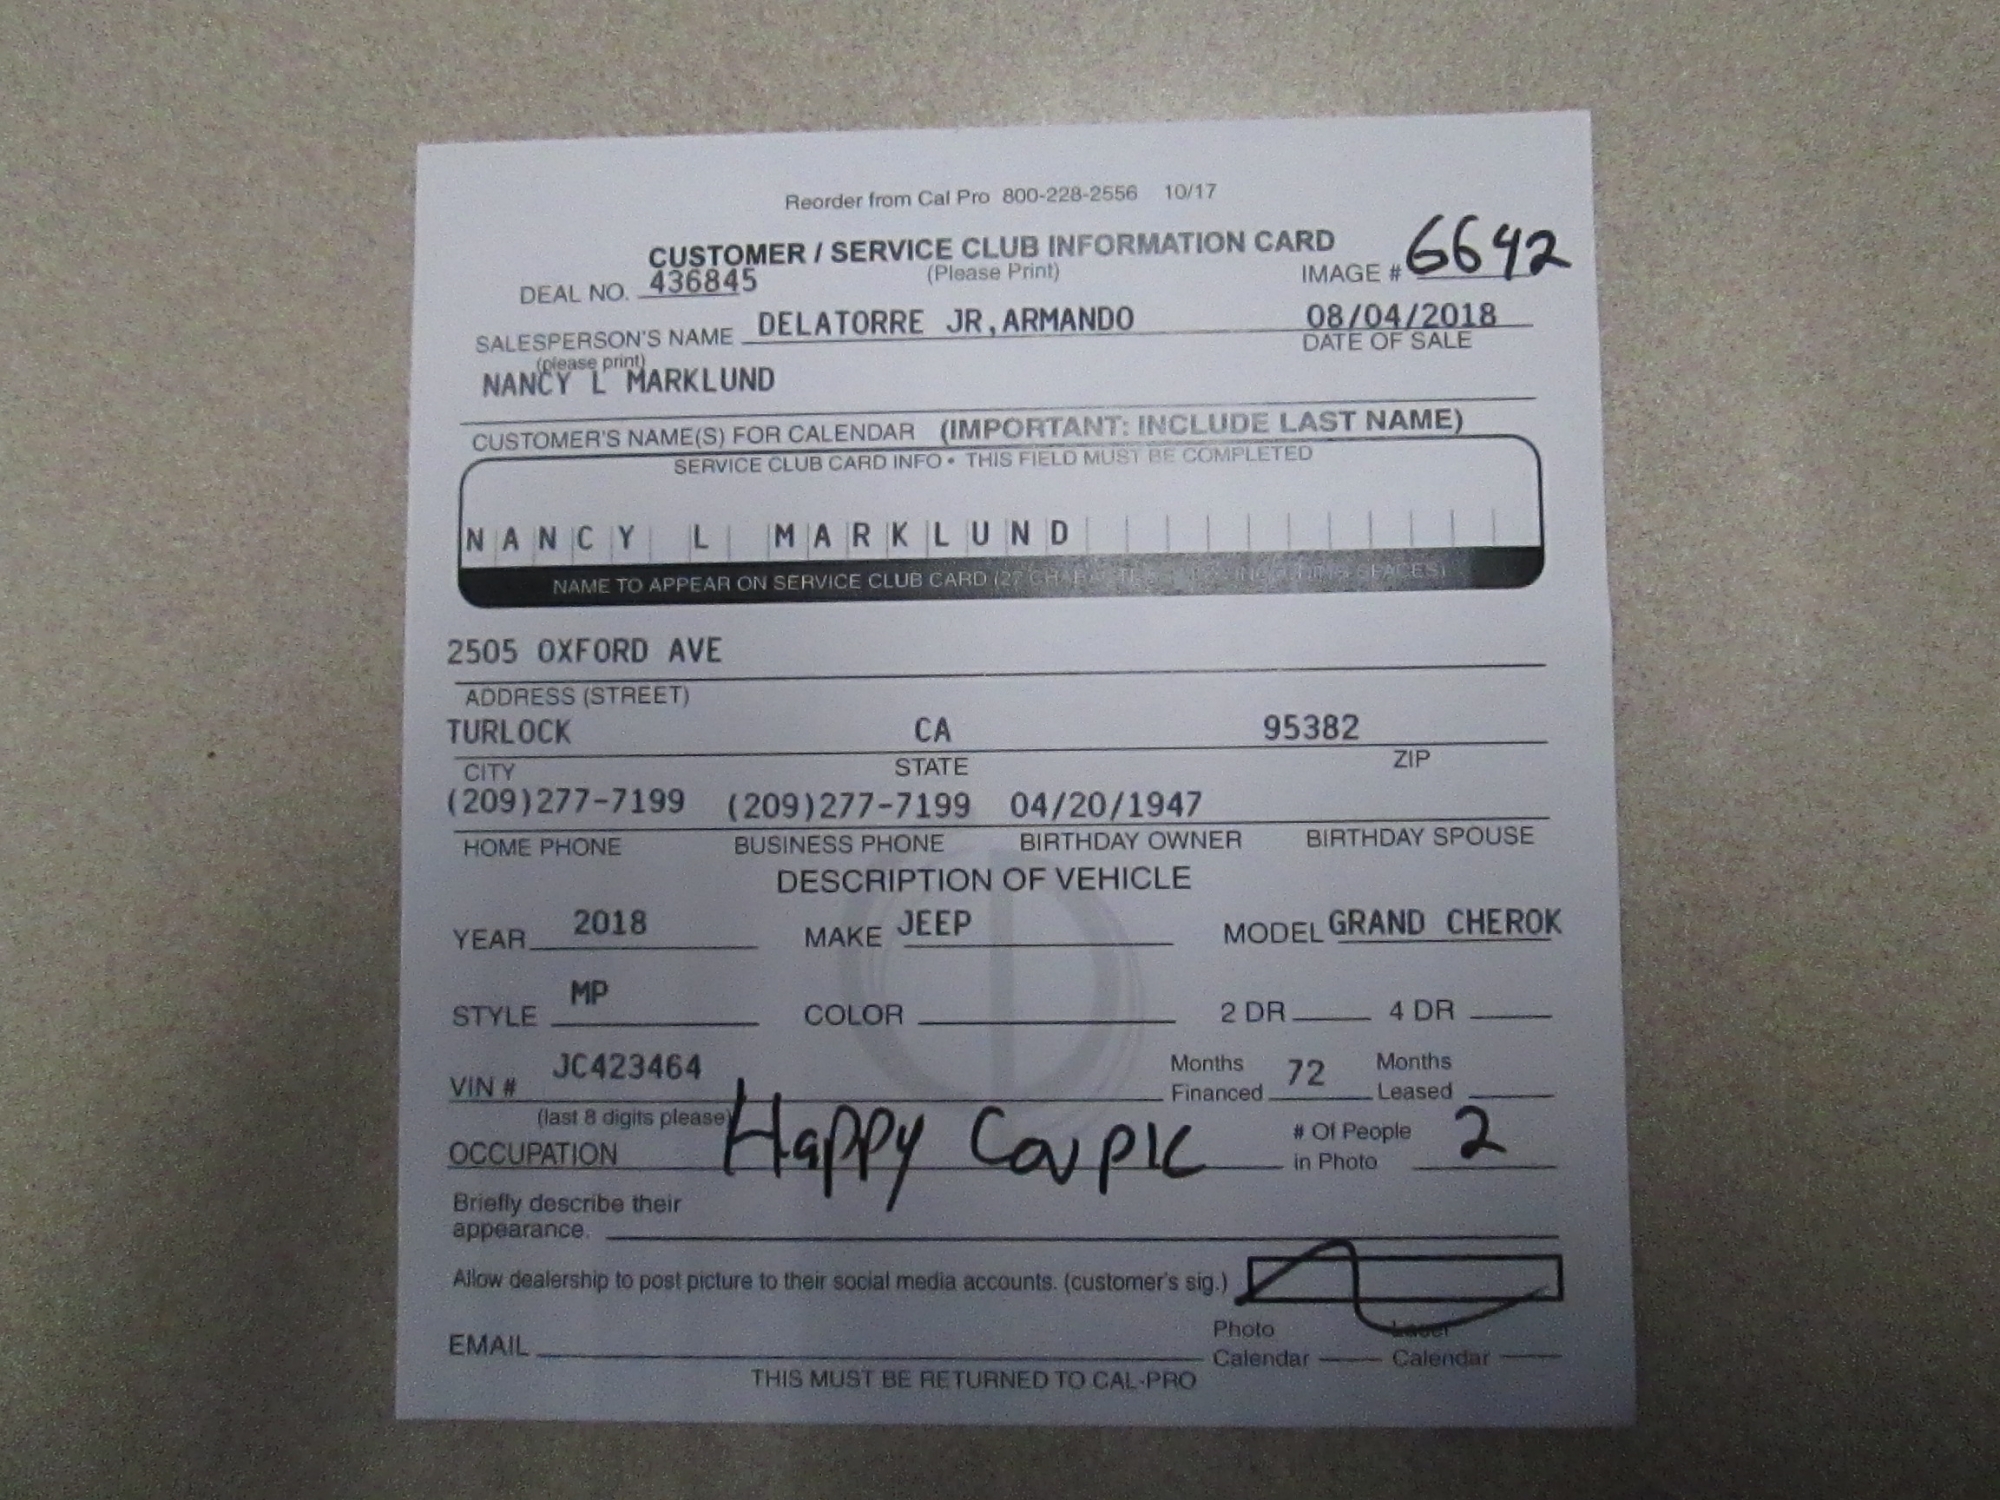 Reorder from Cal Pro 800-228-2556 10/17
CUSTOMER / SERVICE CLUB INFORMATION CARD
(Please Print)
IMAGE # 6642
DEAL NO. 436845
SALESPERSON'S NAME DELATORRE JR,ARMANDO 08/04/2018
(please print) DATE OF SALE
NANCY L MARKLUND
CUSTOMER'S NAME(S) FOR CALENDAR (IMPORTANT: INCLUDE LAST NAME)
SERVICE CLUB CARD INFO • THIS FIELD MUST BE COMPLETED
NANCY L MARKLUND
NAME TO APPEAR ON SERVICE CLUB CARD (27 SPACES)
2505 OXFORD AVE
ADDRESS (STREET)
TURLOCK CA 95382
CITY STATE ZIP
(209)277-7199 (209)277-7199 04/20/1947
HOME PHONE BUSINESS PHONE BIRTHDAY OWNER BIRTHDAY SPOUSE
DESCRIPTION OF VEHICLE
YEAR 2018 MAKE JEEP MODEL GRAND CHEROK
STYLE MP COLOR 2 DR 4 DR
VIN # JC423464 Months Financed 72 Months Leased
(last 8 digits please)
OCCUPATION Happy Couple # Of People in Photo 2
Briefly describe their
appearance.
Allow dealership to post picture to their social media accounts. (customer's sig.)
EMAIL Photo Calendar Calendar
THIS MUST BE RETURNED TO CAL-PRO